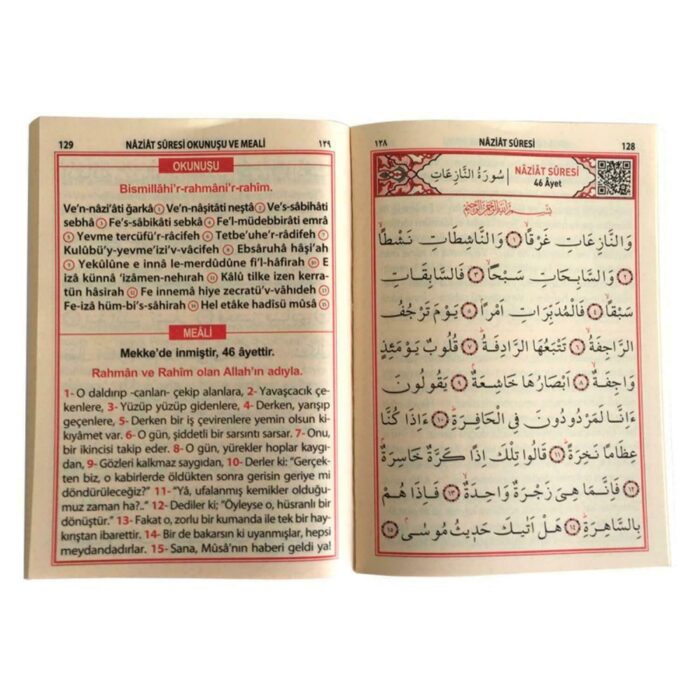 129 NÂZİÂT SÛRESİ OKUNUŞU VE MEALİ ١٢٩
OKUNUŞU
Bismillâhi'r-rahmâni'r-rahîm.
Ve'n-nâzi'âti ğarkâ ١ Ve'n-nâşitâti neştâ ٢ Ve's-sâbihâti
sebhâ ٣ Fe's-sâbikâti sebkâ ٤ Fe'l-müdebbirâti emrâ
٥ Yevme tercüfü'r-râcifeh ٦ Tetbe'uhe'r-râdifeh ٧
Kulûbü'y-yevme'izi'v-vâcifeh ٨ Ebsâruhâ hâşi'ah
٩ Yekûlûne e innâ le-merdûdûne fi'l-hâfirah ١٠ E
izâ künnâ 'izâmen-nehırah ١١ Kâlû tilke izen kerra-
tün hâsirah ١٢ Fe innemâ hiye zecratü'v-vâhıdeh ١٣
Fe-izâ hüm-bi's-sâhirah ١٤ Hel etâke hadîsü mûsâ ١٥
MEÂLİ
Mekke'de inmiştir, 46 âyettir.
Rahmân ve Rahîm olan Allah'ın adıyla.
1- O daldırıp -canları- çekip alanlara, 2- Yavaşcacık çe-
kenlere, 3- Yüzüp yüzüp gidenlere, 4- Derken, yarışıp
geçenlere, 5- Derken bir iş çevirenlere yemin olsun ki-
kıyâmet var. 6- O gün, şiddetli bir sarsıntı sarsar. 7- Onu,
bir ikincisi takip eder. 8- O gün, yürekler hoplar kaygı-
dan, 9- Gözleri kalkmaz saygıdan, 10- Derler ki: "Gerçek-
ten biz, o kabirlerde öldükten sonra gerisin geriye mi
döndürüleceğiz?" 11- "Yâ, ufalanmış kemikler olduğu-
muz zaman ha?.." 12- Dediler ki; "Öyleyse o, hüsranlı bir
dönüştür." 13- Fakat o, zorlu bir kumanda ile tek bir hay-
kırıştan ibarettir. 14- Bir de bakarsın ki uyanmışlar, hepsi
meydandadırlar. 15- Sana, Mûsâ'nın haberi geldi ya!
١٢٨ NÂZİÂT SÛRESİ 128
سُورَةُ النَّازِعَاتِ
NÂZİÂT SÛRESİ
46 Âyet
بِسْمِ اللّٰهِ الرَّحْمٰنِ الرَّحِيمِ
وَالنَّازِعَاتِ غَرْقًاۙ ١ وَالنَّاشِطَاتِ نَشْطًاۙ
٢ وَالسَّابِحَاتِ سَبْحًاۙ ٣ فَالسَّابِقَاتِ
سَبْقًاۙ ٤ فَالْمُدَبِّرَاتِ اَمْرًاۢ ٥ يَوْمَ تَرْجُفُ
الرَّاجِفَةُۙ ٦ تَتْبَعُهَا الرَّادِفَةُۜ ٧ قُلُوبٌ يَوْمَئِذٍ
وَاجِفَةٌۙ ٨ اَبْصَارُهَا خَاشِعَةٌۢ ٩ يَقُولُونَ
ءَاِنَّا لَمَرْدُودُونَ فِي الْحَافِرَةِۜ ١٠ ءَاِذَا كُنَّا
عِظَامًا نَخِرَةًۜ ١١ قَالُوا تِلْكَ اِذًا كَرَّةٌ خَاسِرَةٌۢ
١٢ فَاِنَّمَا هِيَ زَجْرَةٌ وَاحِدَةٌۙ ١٣ فَاِذَا هُمْ
بِالسَّاهِرَةِۜ ١٤ هَلْ اَتٰيكَ حَدِيثُ مُوسٰىۢ ١٥